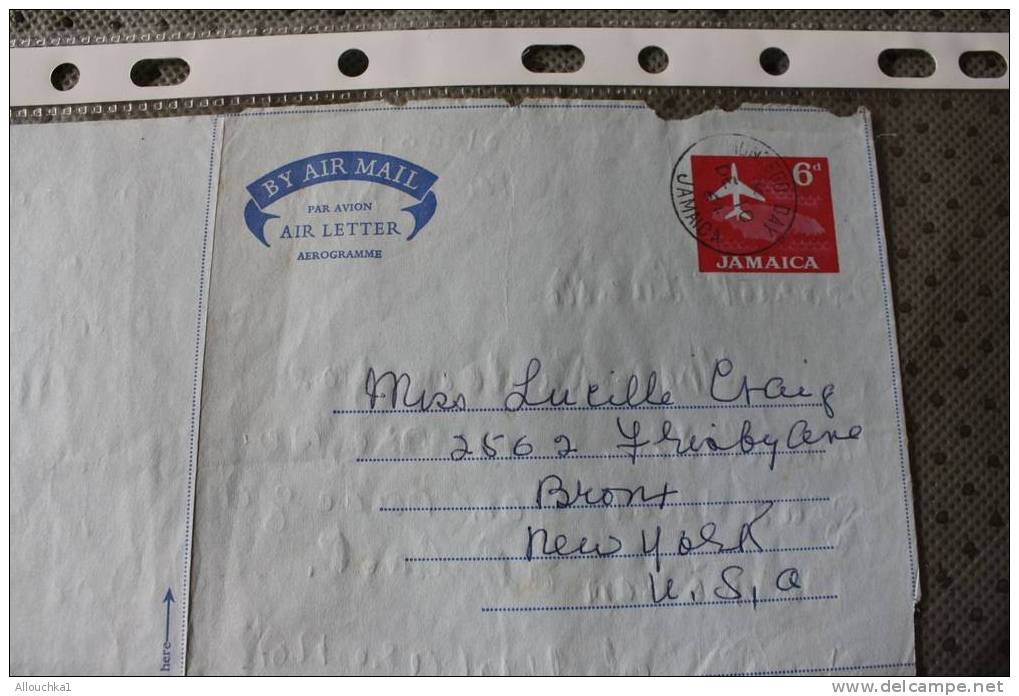 BY AIR MAIL
PAR AVION
AIR LETTER
AEROGRAMME
6d
JAMAICA
JAMAICA
Miss Lucille Craig
2562 Frisby Ave
Bronx
New York
U.S,a
here
Allouchka1
delcampe.net